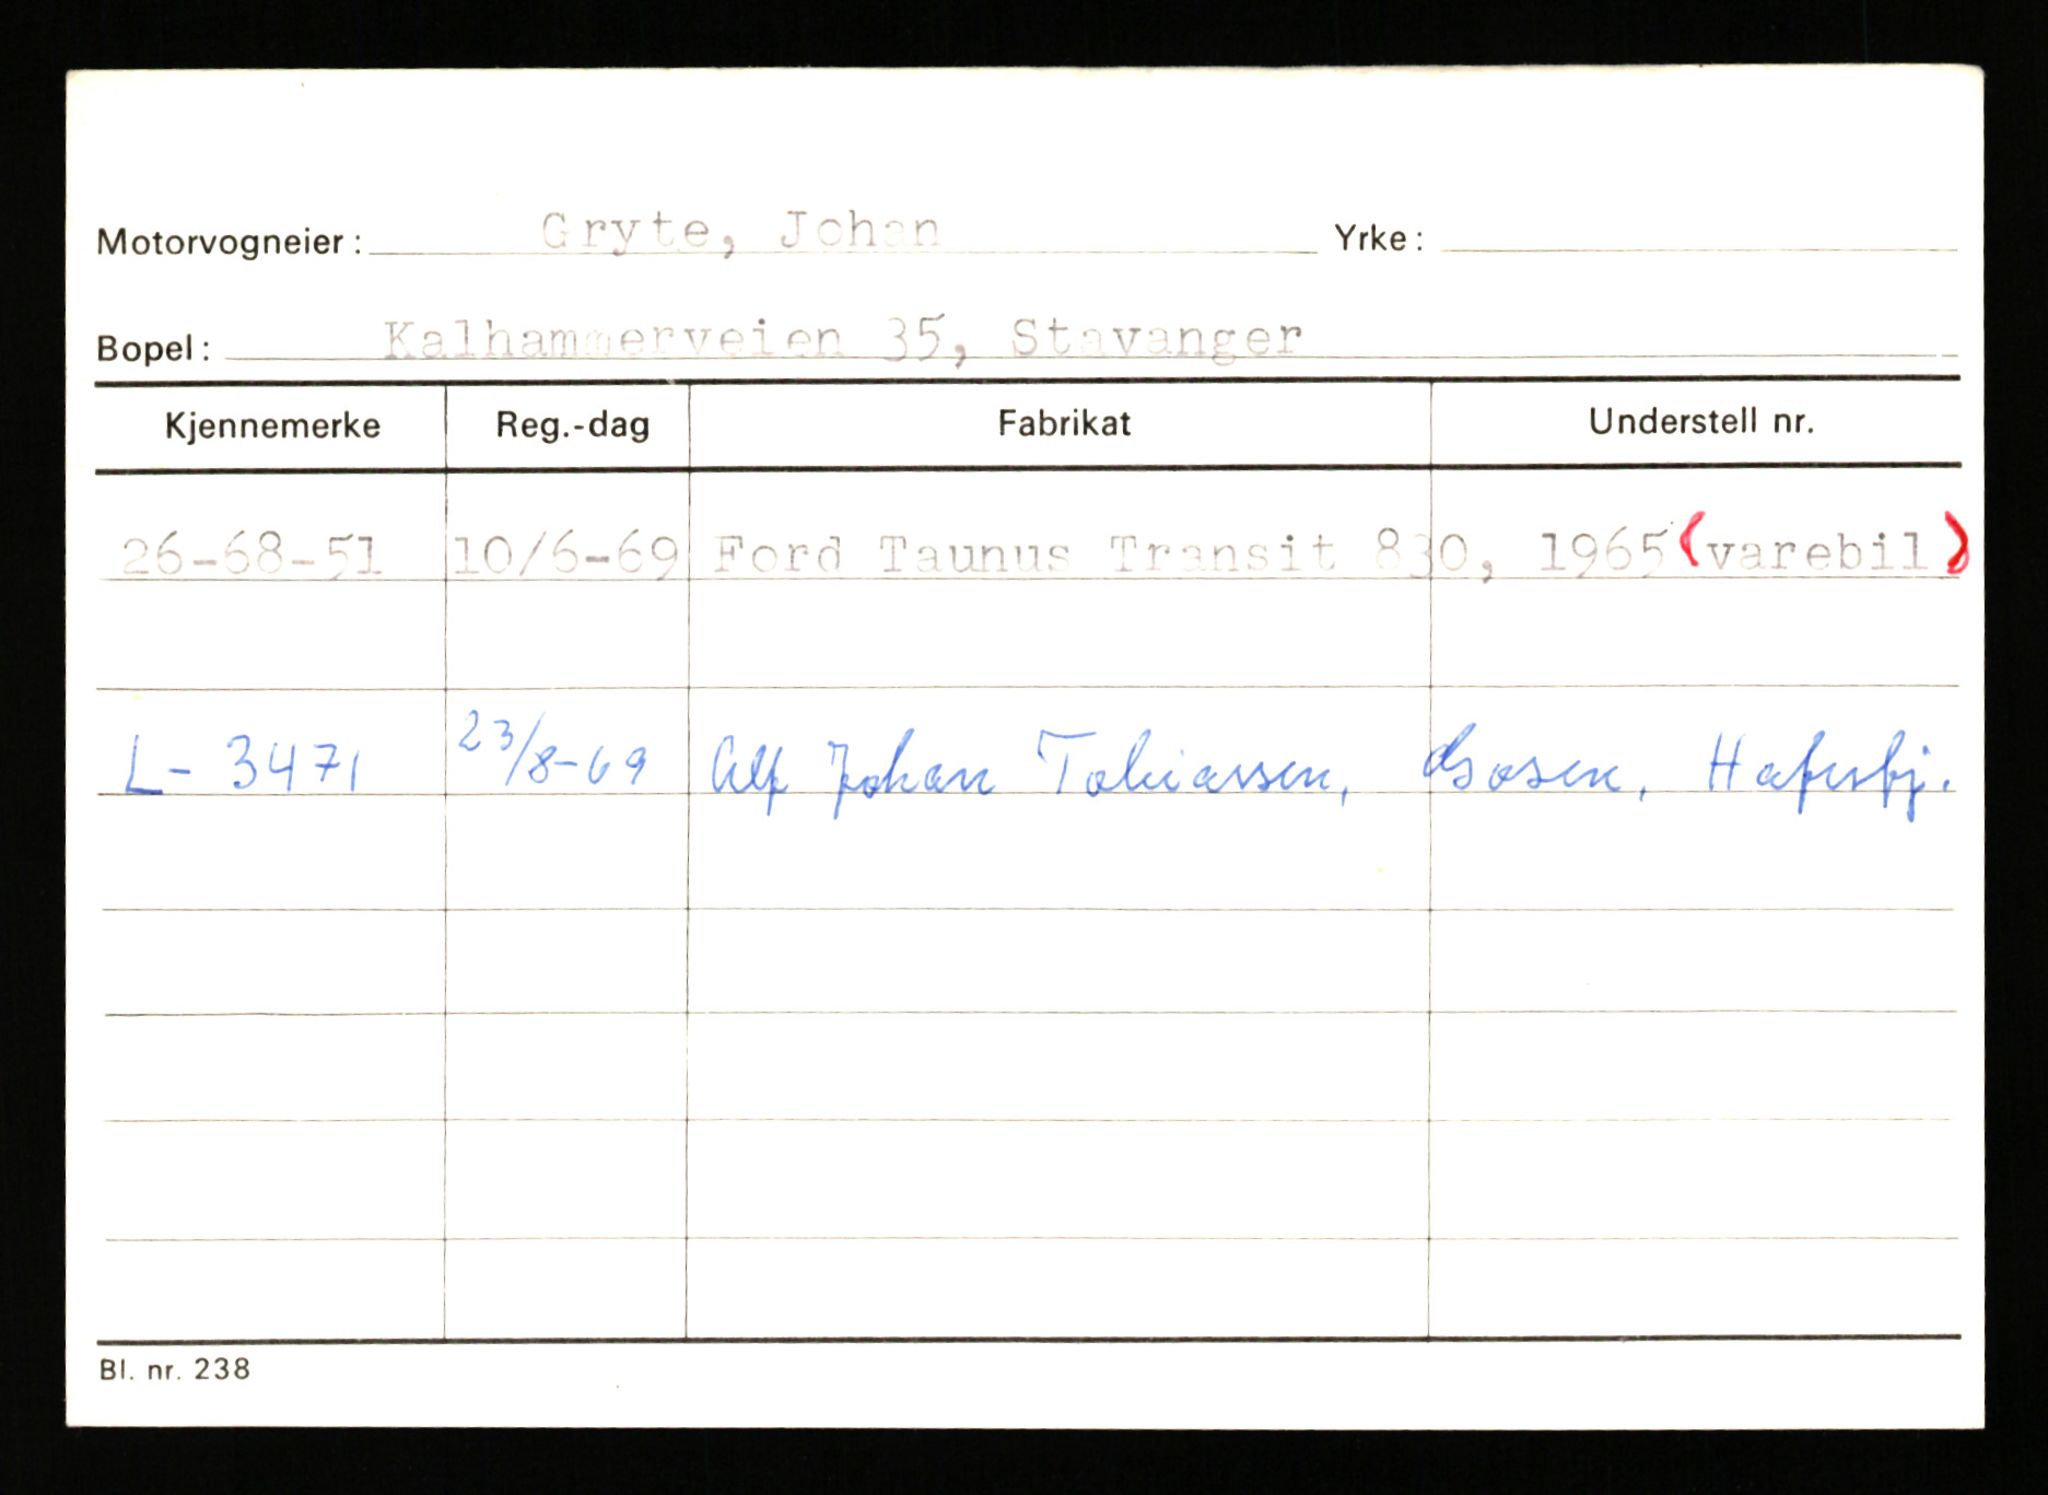 Motorvogneier: Gryte, Johan Yrke:
Bopel: Kalhammerveien 35, Stavanger
Kjennemerke Reg.-dag Fabrikat Understell nr.
26-68-51 10/6-69 Ford Taunus Transit 830, 1965 (varebil)
L-3471 23/8-69 Alf Johan Tobiassen, Gosen, Hafrsfj.
Bl. nr. 238